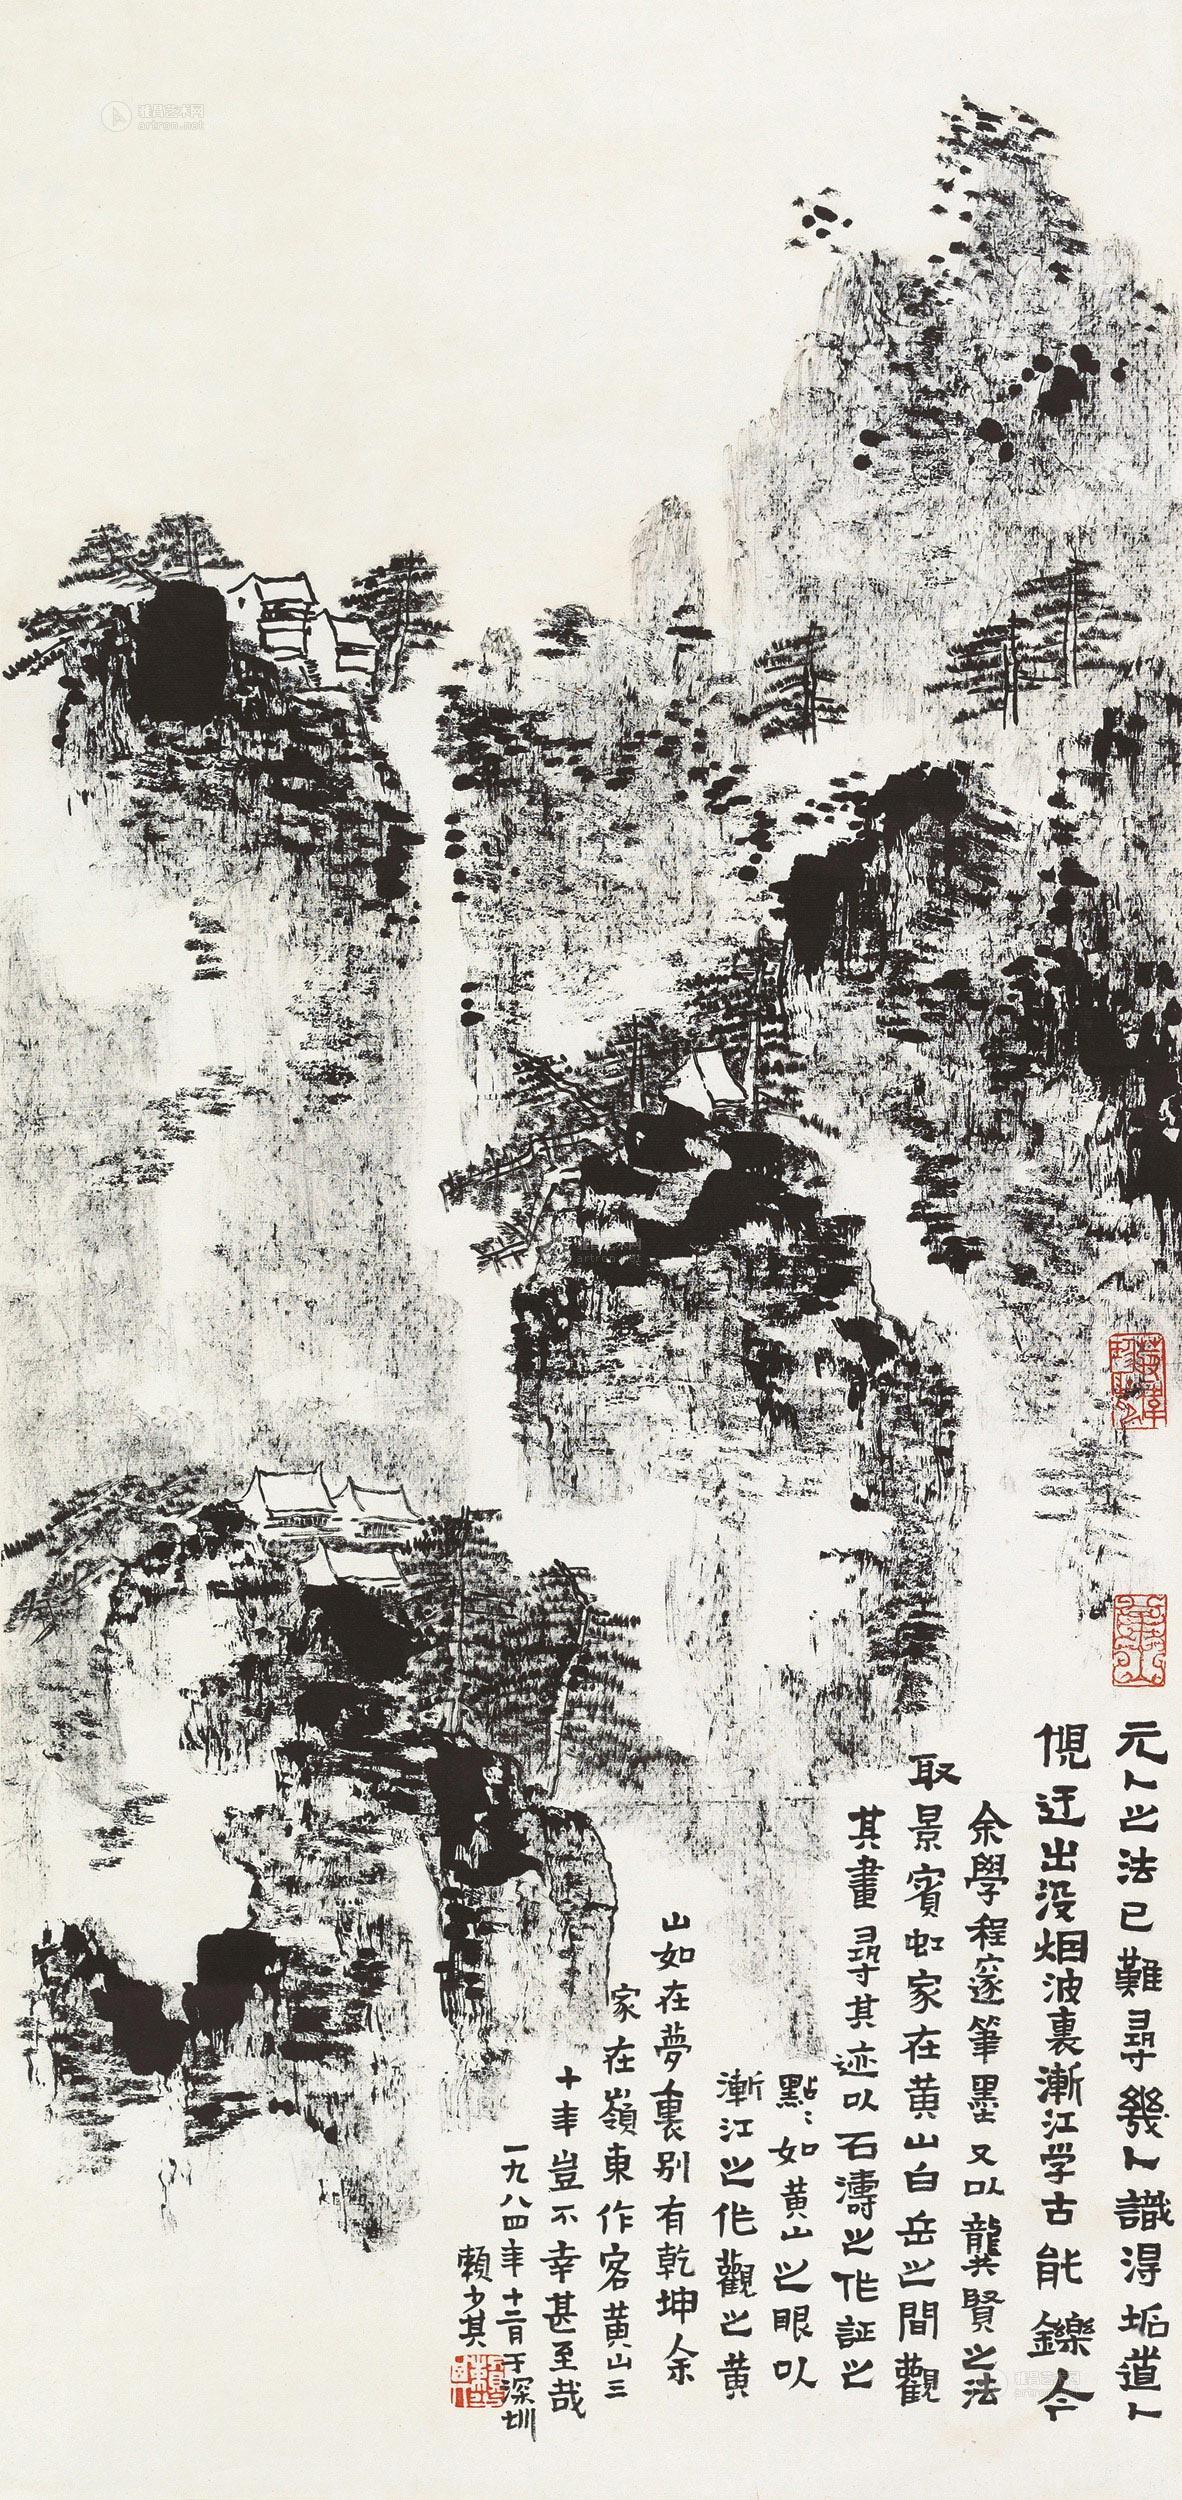 元人之法已難尋幾人識得垢道人
倪迂出没烟波裏漸江学古能鑠今
余學程邃筆墨又以龔賢之法
取景賓虹家在黄山白岳之間觀
其畫尋其迹以石濤之作証之
點點如黄山之眼以
漸江之作觀之黄
山如在夢裏别有乾坤余
家在嶺東作客黄山三
十年豈不幸甚至哉
一九八四年十二月于深圳
賴少其
雅昌艺术网
artron.net